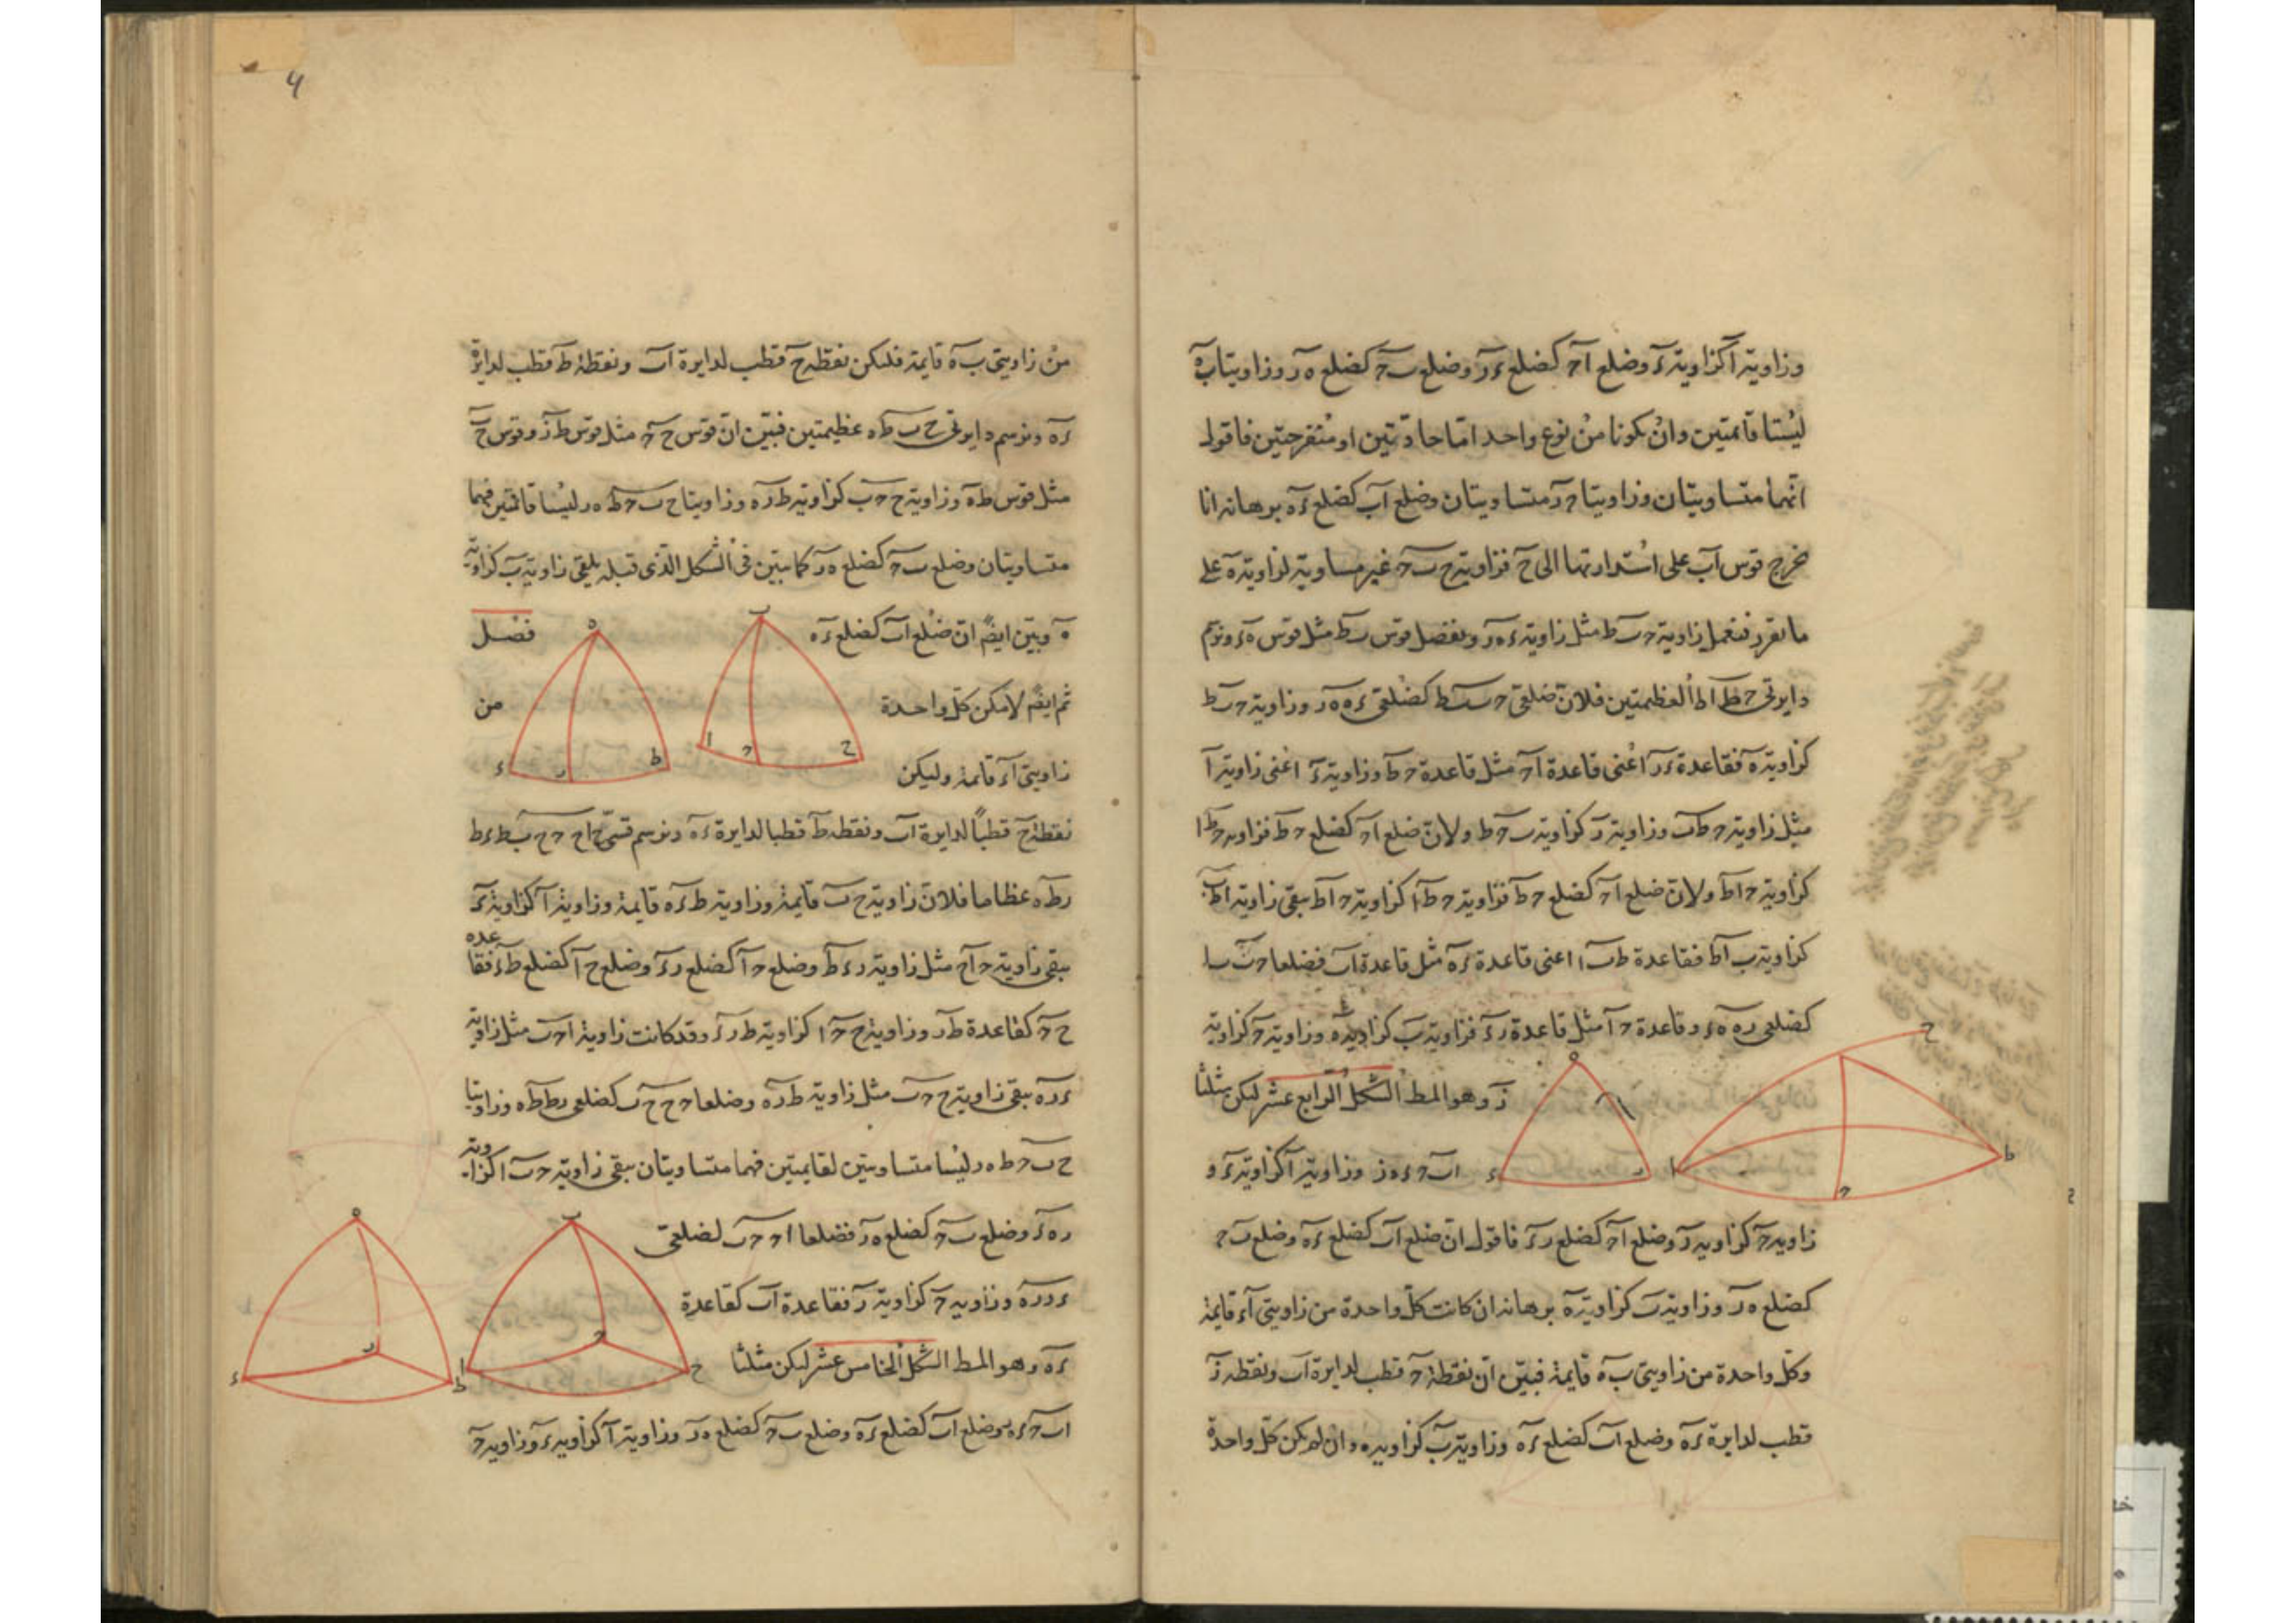 وزاوية آ كزاوية ءَ وضلع آحـ كضلع ءر وضلع بحـ كضلع ه ر وزاويتا ب ه
ليستا قائمتين وان يكونا من نوع واحد اما حادتين او منفرجتين فاقول
انهما متساويتان وزاويتا حـ ر متساويتان وضلع آب كضلع ءه برهانه انا
نخرج قوس آب على استدارتها الى ح فزاوية ح ب حـ غير مساوية لزاوية ه على
ما نقرر فنعمل زاوية حـ ب ط مثل زاوية ء ه ر ونفصل قوس ب ط مثل قوس ه ء ونرسم
دايرتى حـ ط ا ط العظيمتين فلان ضلعى حـ ب ب ط كضلعى ء ه ه ر وزاوية حـ ب ط
كزاوية ه فقاعدة ء ر اعنى قاعدة ا حـ مثل قاعدة حـ ط وزاوية ء اعنى زاوية آ
مثل زاوية حـ ط ب وزاوية ر كزاوية ب حـ ط ولان ضلع ا حـ كضلع حـ ط فزاوية حـ ط ا
كزاوية حـ ا ط ولان ضلع ا حـ كضلع حـ ط فزاوية حـ ط ا كزاوية حـ ا ط يبقى زاوية ا ط ب
كزاوية ب ا ط فقاعدة ط ب اعنى قاعدة ء ه مثل قاعدة ا ب فضلعا حـ ب ب ا
كضلعى ر ه ه ء وقاعدة حـ ا مثل قاعدة ر ء فزاوية ب كزاوية ه وزاوية حـ كزاوية
ر وهو المط الشكل الرابع عشر ليكن مثلثا
ا ب حـ ء ه ر وزاوية آ كزاوية ء و
زاوية حـ كزاوية ر وضلع ا حـ كضلع ر ء فاقول ان ضلع ا ب كضلع ء ه وضلع ب حـ
كضلع ه ر وزاوية ب كزاوية ه برهانه ان كانت كل واحدة من زاويتى آ ء قايمة
وكل واحدة من زاويتى ب ه قايمة فبين ان نقطة حـ قطب لدايرة ا ب ونقطة ر
قطب لدايرة ء ه وضلع ا ب كضلع ء ه وزاوية ب كزاوية ه وان لم يكن كل واحدة
من زاويتى ب ه قايمة فليكن نقطة ح قطب لدايرة ا ب ونقطة ط قطب لدايرة
ء ه ونرسم دايرتى ح ب ط ه عظيمتين فبين ان قوس ح حـ مثل قوس ط ر وقوس ح ب
مثل قوس ط ه وزاوية ح حـ ب كزاوية ط ر ه وزاويتا ح ب حـ ط ه ر ليستا قائمتين فهما
متساويتان وضلع ب حـ كضلع ه ر كما بين فى الشكل الذى قبله يلقى زاوية ب كزاوية
ه وبين ايضا ان ضلع ا ب كضلع ء ه فصل
ثم ايضا لا يمكن كل واحدة من
زاويتى آ ء قايمة وليكن
نقطة ح قطبا لدايرة ا ب ونقطة ط قطبا لدايرة ء ه ونرسم قسى ح ا ح حـ ح ب ط ء ط
ر ط ه عظاما فلان زاوية ح ا ب قايمة وزاوية ط ء ه قايمة وزاوية آ كزاوية ء
يبقى زاوية حـ ا ح مثل زاوية ر ء ط وضلع حـ ا كضلع ر ء وضلع ح ا كضلع ط ء فقاعدة
ح حـ كقاعدة ط ر وزاوية ح حـ ا كزاوية ط ر ء وقد كانت زاوية ا حـ ب مثل زاوية
ء ر ه يبقى زاوية ح حـ ب مثل زاوية ط ر ه وضلعا حـ ح ح ب كضلعى ر ط ط ه وزاويتا
ح ب حـ ط ه ر ليستا متساويتين لقايمتين فهما متساويتان يبقى زاوية حـ ب ا كزاوية
ر ه ء وضلع ب حـ كضلع ه ر فضلعا ا حـ حـ ب لضلعى
ء ر ر ه وزاوية حـ كزاوية ر فقاعدة ا ب كقاعدة
ء ه وهو المط الشكل الخامس عشر ليكن مثلثا
ا ب حـ ء ه ر وضلع ا ب كضلع ء ه وضلع ب حـ كضلع ه ر وزاوية آ كزاوية ء وزاوية حـ